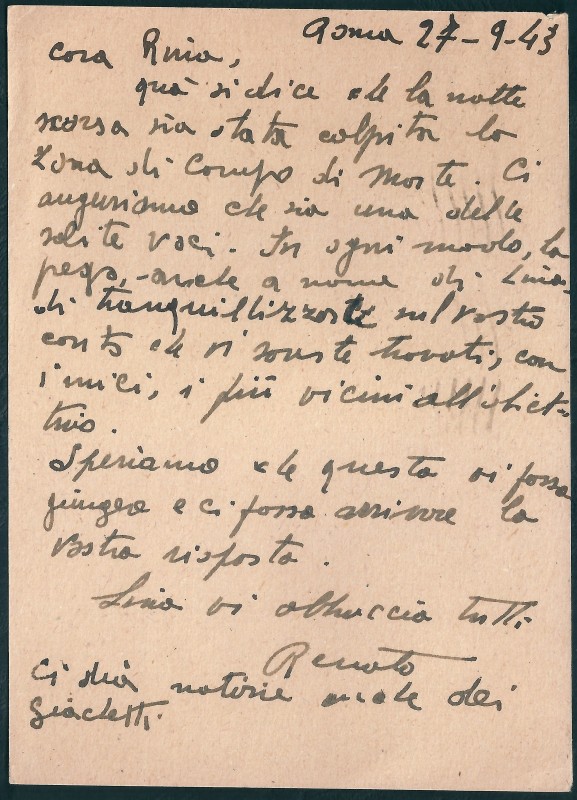 Roma 27-9-43
Cara Rina,
quà si dice che la notte
scorsa sia stata colpita la
zona di Campo di Marte. Ci
auguriamo che sia una delle
solite voci. In ogni modo, la
prego, - anche a nome di Lina -
di tranquillizzarci sul vostro
conto che vi sareste trovati, con
i miei, i più vicini all'obiet-
tivo.
Speriamo che questa vi possa
giungere e ci possa arrivare la
vostra risposta.
Lina vi abbraccia tutti.
Renato
Ci dia notizie anche dei
Giachetti.